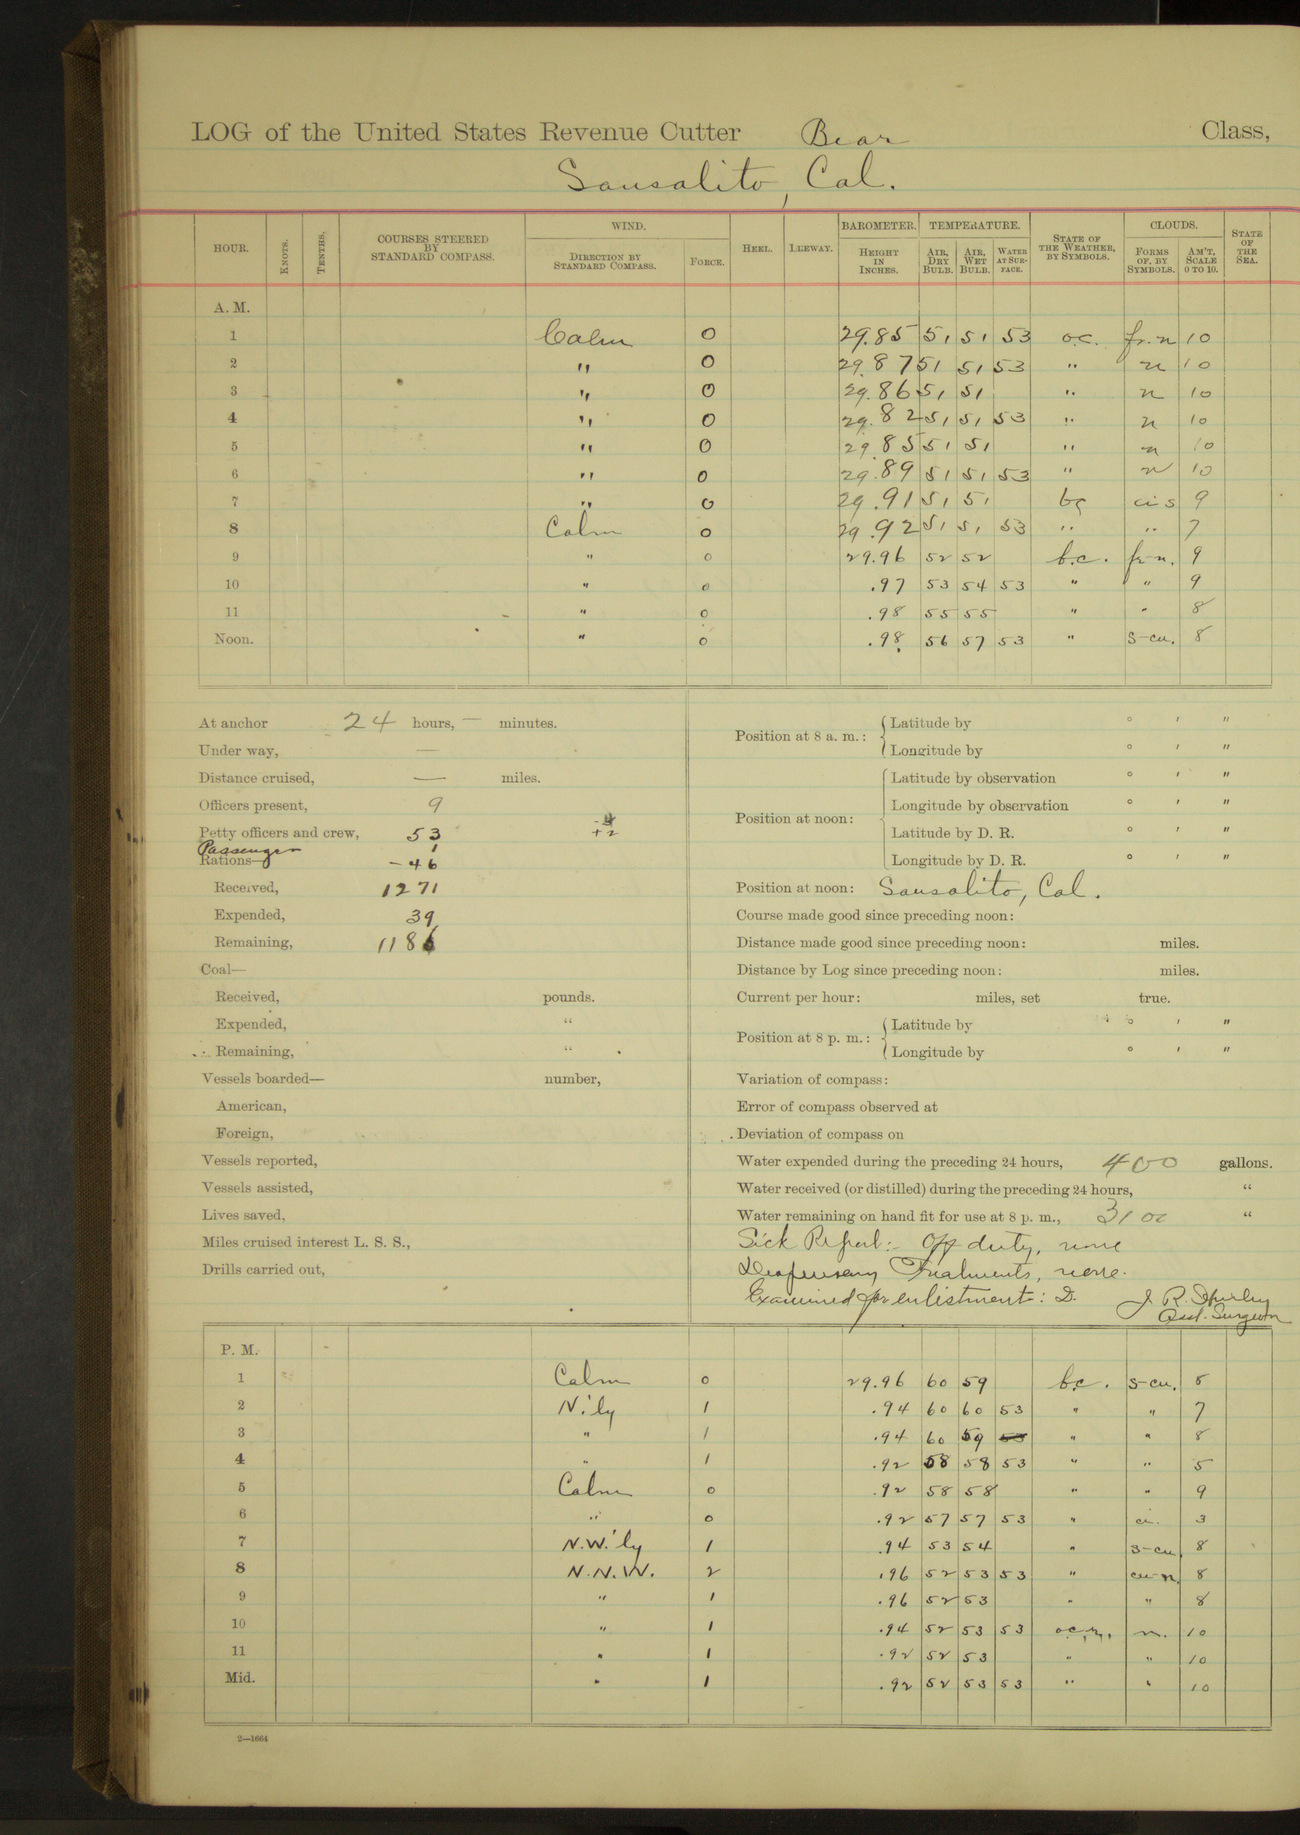 LOG of the United States Revenue Cutter Bear Class,
Sausalito, Cal.
HOUR. KNOTS. TENTHS. COURSES STEERED BY STANDARD COMPASS. WIND. DIRECTION BY STANDARD COMPASS. FORCE. HEEL. LEEWAY. BAROMETER. HEIGHT IN INCHES. TEMPERATURE. AIR, DRY BULB. AIR, WET BULB. WATER AT SURFACE. STATE OF THE WEATHER, BY SYMBOLS. CLOUDS. FORMS OF, BY SYMBOLS. AM'T, SCALE 0 TO 10. STATE OF THE SEA.
A. M.
1 Calm 0 29.85 51 51 53 o.c. fr.n 10
2 " 0 29.87 51 51 53 " n 10
3 " 0 29.86 51 51 " n 10
4 " 0 29.82 51 51 53 " n 10
5 " 0 29.85 51 51 " n 10
6 " 0 29.89 51 51 53 " n 10
7 " 0 29.91 51 51 bc ci s 9
8 Calm 0 29.92 51 51 53 " " 7
9 " 0 29.96 52 52 b.c. fr-n. 9
10 " 0 .97 53 54 53 " " 9
11 " 0 .98 55 55 " " 8
Noon. " 0 .98 56 57 53 " s-cu. 8
At anchor 24 hours, — minutes.
Under way, —
Distance cruised, — miles.
Officers present, 9
Petty officers and crew, 53 -4 +2
Passenger 1
Rations— -46
Received, 1271
Expended, 39
Remaining, 1186
Coal—
Received, pounds.
Expended, "
Remaining, "
Vessels boarded— number,
American,
Foreign,
Vessels reported,
Vessels assisted,
Lives saved,
Miles cruised interest L. S. S.,
Drills carried out,
Position at 8 a. m.: Latitude by ° ' "
Longitude by ° ' "
Position at noon: Latitude by observation ° ' "
Longitude by observation ° ' "
Latitude by D. R. ° ' "
Longitude by D. R. ° ' "
Position at noon: Sausalito, Cal.
Course made good since preceding noon:
Distance made good since preceding noon: miles.
Distance by Log since preceding noon: miles.
Current per hour: miles, set true.
Position at 8 p. m.: Latitude by ° ' "
Longitude by ° ' "
Variation of compass:
Error of compass observed at
Deviation of compass on
Water expended during the preceding 24 hours, 400 gallons.
Water received (or distilled) during the preceding 24 hours, "
Water remaining on hand fit for use at 8 p. m., 3100 "
Sick Report:- Off duty, none
Dispensary Treatments, none.
Examined for enlistment: D.
J. R.
Asst. Surgeon
P. M.
1 Calm 0 29.96 60 59 b.c. s-cu. 8
2 N.'ly 1 .94 60 60 53 " " 7
3 " 1 .94 60 59 53 " " 8
4 " 1 .92 58 58 53 " " 5
5 Calm 0 .92 58 58 " " 9
6 " 0 .92 57 57 53 " ci. 3
7 N.W.'ly 1 .94 53 54 " s-cu. 8
8 N.N.W. 2 .96 52 53 53 " cu-n. 8
9 " 1 .96 52 53 " " 8
10 " 1 .94 52 53 53 n. 10
11 " 1 .92 52 53 " " 10
Mid. " 1 .92 52 53 53 " " 10
2—1664